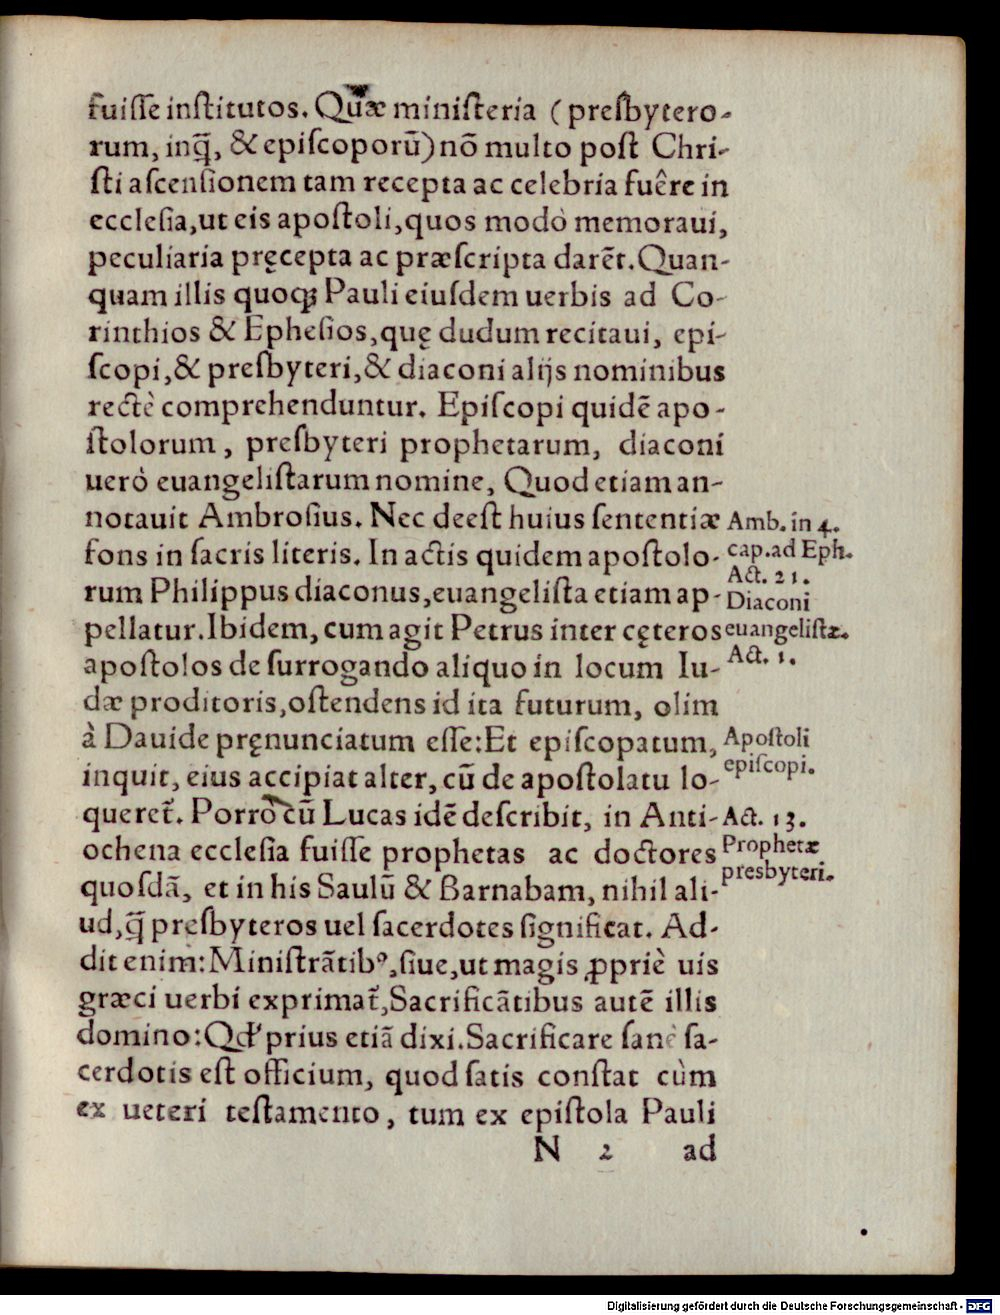 fuiſſe inſtitutos. Quæ miniſteria (preſbytero-
rum, inq̃, & epiſcoporũ) nõ multo poſt Chri-
ſti aſcenſionem tam recepta ac celebria fuêre in
eccleſia, ut eis apoſtoli, quos modò memoraui,
peculiaria pręcepta ac præſcripta darẽt. Quan-
quam illis quoqꝫ Pauli eiuſdem uerbis ad Co-
rinthios & Epheſios, quę dudum recitaui, epi-
ſcopi, & preſbyteri, & diaconi alijs nominibus
rectè comprehenduntur. Epiſcopi quidẽ apo-
ſtolorum, preſbyteri prophetarum, diaconi
uerò euangeliſtarum nomine, Quod etiam an-
notauit Ambroſius. Nec deeſt huius ſententiæ
fons in ſacris literis. In actis quidem apoſtolo-
rum Philippus diaconus, euangeliſta etiam ap-
pellatur. Ibidem, cum agit Petrus inter cęteros
apoſtolos de ſurrogando aliquo in locum Iu-
dæ proditoris, oſtendens id ita futurum, olim
à Dauide pręnunciatum eſſe: Et epiſcopatum,
inquit, eius accipiat alter, cũ de apoſtolatu lo-
queret᷑. Porrò cũ Lucas idẽ deſcribit, in Anti-
ochena eccleſia fuiſſe prophetas ac doctores
quoſdã, et in his Saulũ & Barnabam, nihil ali-
ud, q̃ preſbyteros uel ſacerdotes ſignificat. Ad-
dit enim: Miniſtrãtibꝰ, ſiue, ut magis ꝓpriè uis
græci uerbi exprimat᷑, Sacrificãtibus autẽ illis
domino: Qđ prius etiã dixi. Sacrificare ſanè ſa-
cerdotis eſt officium, quod ſatis conſtat cùm
ex ueteri teſtamento, tum ex epiſtola Pauli
N 2 ad
Amb. in 4.
cap. ad Eph.
Act. 21.
Diaconi
euangeliſtæ.
Act. 1.
Apoſtoli
epiſcopi.
Act. 13.
Prophetæ
presbyteri.
Digitalisierung gefördert durch die Deutsche Forschungsgemeinschaft - DFG